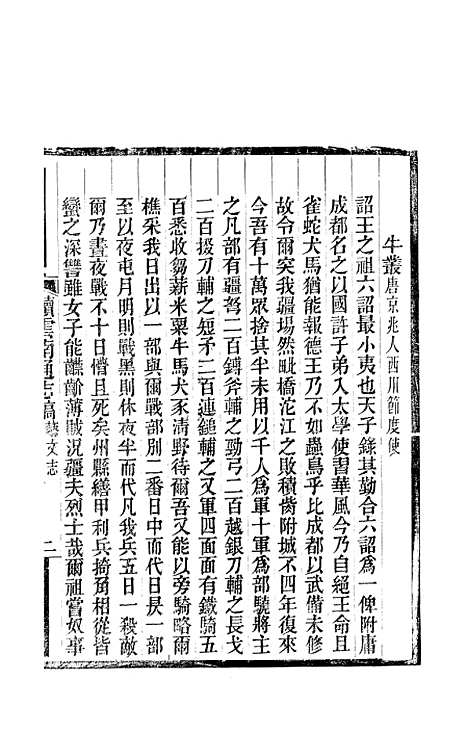 牛叢唐京兆人西川節度使
詔王之祖六詔最小夷也天子錄其勤合六詔爲一俾附庸
成都名之以國許子弟入太學使習華風今乃自絕王命且
雀蛇犬馬猶能報德王乃不如蟲鳥乎比成都以武備未修
故令爾突我疆埸然毗橋沱江之敗積胔附城不四年復來
今吾有十萬眾捨其半未用以千人爲軍十軍爲部驍將主
之凡部有疆弩二百鎛斧輔之勁弓二百越銀刀輔之長戈
二百掇刀輔之短矛二百連鎚輔之又軍四面面有鐵騎五
百悉收芻薪米粟牛馬犬豕清野待爾吾又能以旁騎略爾
樵采我日出以一部與爾戰部別二番日中而代日昃一部
至以夜屯月明則戰黑則休夜半而代凡我兵五日一殺敵
爾乃晝夜戰不十日懵且死矣州縣繕甲利兵掎角相從皆
蠻之深讐雖女子能齽齘薄賊況疆夫烈士哉爾祖嘗奴事
續雲南通志稿藝文志
二